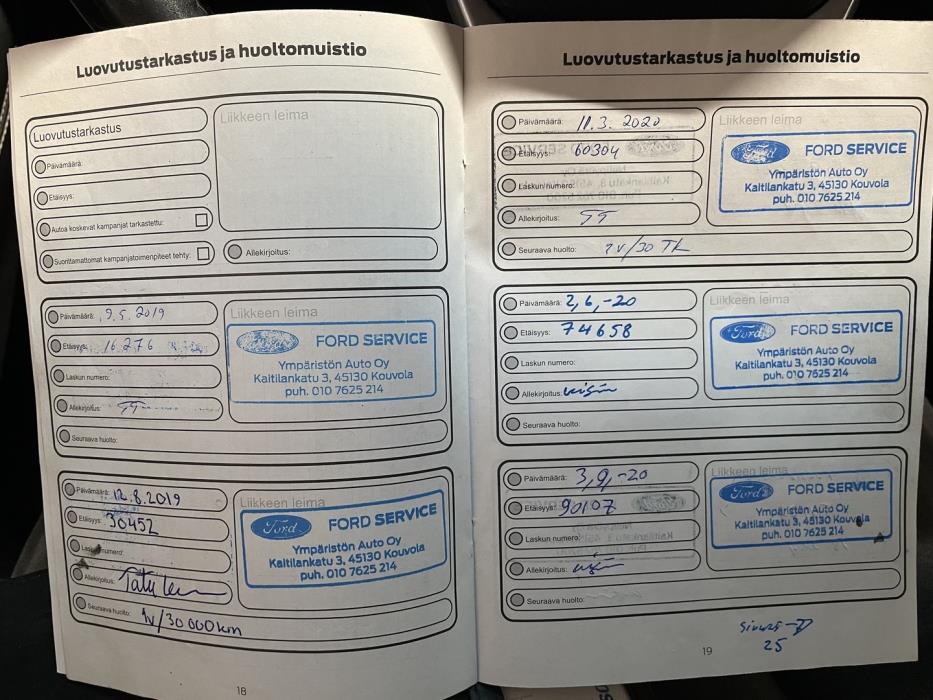 Luovutustarkastus ja huoltomuistio
Luovutustarkastus
Päivämäärä:
Etäisyys:
Autoa koskevat kampanjat tarkastettu:
Suorittamattomat kampanjatoimenpiteet tehty:
Liikkeen leima
Allekirjoitus:
Päivämäärä: 9.5.2019
Etäisyys: 16276
Laskun numero:
Allekirjoitus: TT
Seuraava huolto:
Liikkeen leima
Ford FORD SERVICE
Ympäristön Auto Oy
Kaitilankatu 3, 45130 Kouvola
puh. 010 7625 214
Päivämäärä: 12.8.2019
Etäisyys: 30452
Laskun numero:
Allekirjoitus:
Seuraava huolto: 1v/30 000km
Liikkeen leima
Ford FORD SERVICE
Ympäristön Auto Oy
Kaitilankatu 3, 45130 Kouvola
puh. 010 7625 214
18
Luovutustarkastus ja huoltomuistio
Päivämäärä: 11.3.2020
Etäisyys: 60304
Laskun numero:
Allekirjoitus: TT
Seuraava huolto: 1v/30 TK
Liikkeen leima
Ford FORD SERVICE
Ympäristön Auto Oy
Kaitilankatu 3, 45130 Kouvola
puh. 010 7625 214
Päivämäärä: 2,6,-20
Etäisyys: 74658
Laskun numero:
Allekirjoitus:
Seuraava huolto:
Liikkeen leima
Ford FORD SERVICE
Ympäristön Auto Oy
Kaitilankatu 3, 45130 Kouvola
puh. 010 7625 214
Päivämäärä: 3,9,-20
Etäisyys: 90107
Laskun numero:
Allekirjoitus:
Seuraava huolto:
Liikkeen leima
Ford FORD SERVICE
Ympäristön Auto Oy
Kaitilankatu 3, 45130 Kouvola
puh. 010 7625 214
25
19